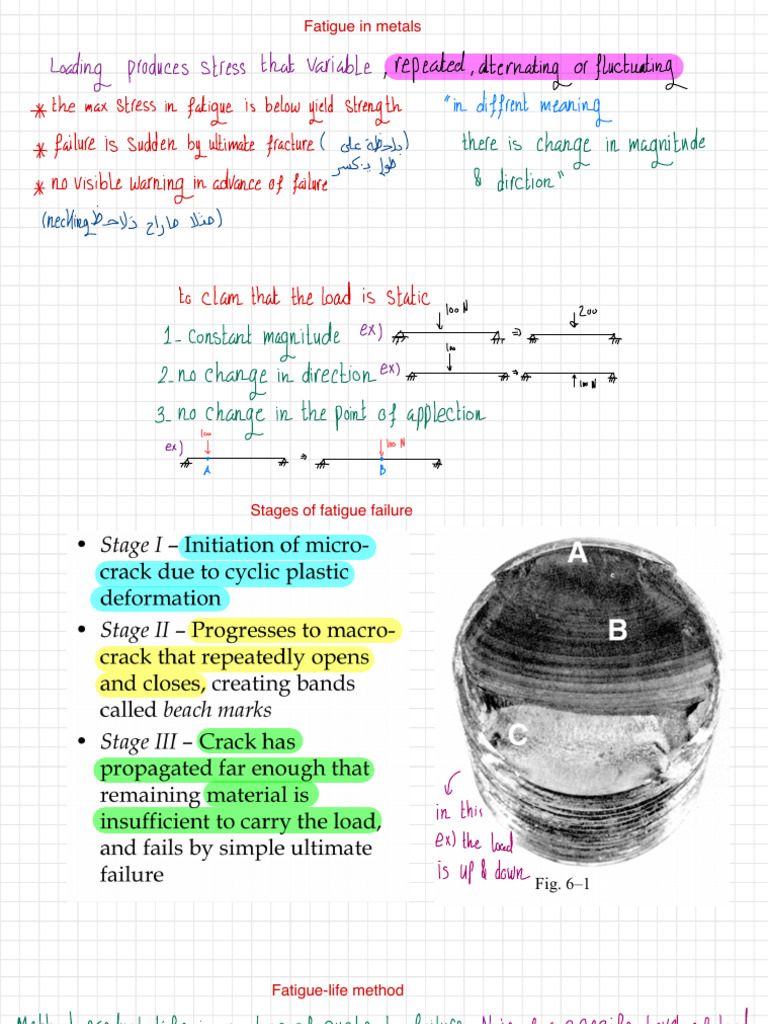 Fatigue in metals
Loading produces stress that variable, repeated, alternating or fluctuating
* the max stress in fatigue is below yield strength
"in diffrent meaning
* failure is sudden by ultimate fracture (
طول ينكسر
there is change in magnitude
* no visible warning in advance of failure
& dirction"
(مثلا ماراح نلاحظ necking)
to clam that the load is static
1- Constant magnitude ex) 100 N ⇒ 200
2- no change in direction ex) 100 ⇒ 100 N
3- no change in the point of applection
ex) 100 A ⇒ 100 N B
Stages of fatigue failure
• Stage I – Initiation of micro-
crack due to cyclic plastic
deformation
• Stage II – Progresses to macro-
crack that repeatedly opens
and closes, creating bands
called beach marks
• Stage III – Crack has
propagated far enough that
remaining material is
insufficient to carry the load,
and fails by simple ultimate
failure
A
B
C
in this
ex) the load
is up & down
Fig. 6–1
Fatigue-life method